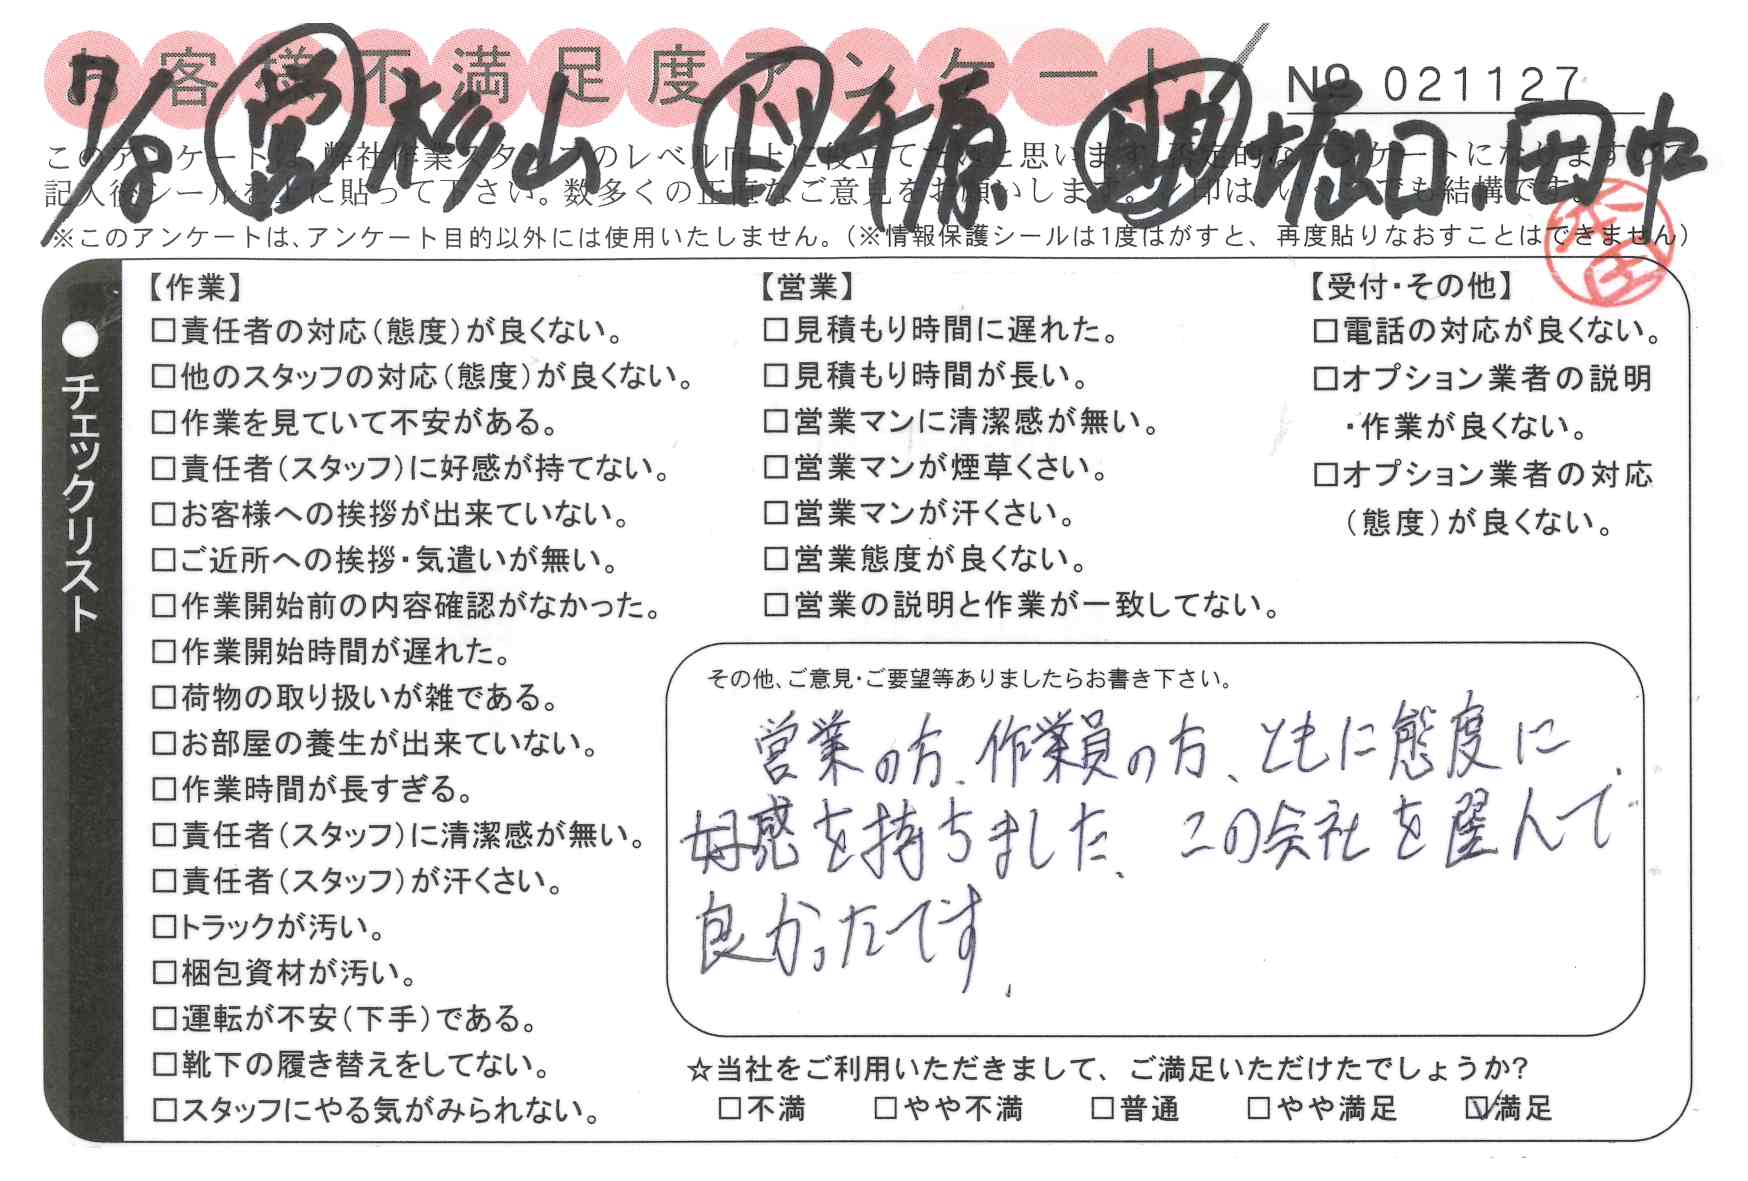 お客様不満足度アンケート
№ 021127
7/8 営 杉山 千原 堀口 田中
このアンケートは、弊社作業スタッフのレベル向上に役立てたいと思います。否定的なアンケートになりますので
記入後シールを上に貼って下さい。数多くの正直なご意見をお願いします。レ印は、いくつでも結構です。
※このアンケートは、アンケート目的以外には使用いたしません。(※情報保護シールは1度はがすと、再度貼りなおすことはできません)
チェックリスト
【作業】
□責任者の対応(態度)が良くない。
□他のスタッフの対応(態度)が良くない。
□作業を見ていて不安がある。
□責任者(スタッフ)に好感が持てない。
□お客様への挨拶が出来ていない。
□ご近所への挨拶・気遣いが無い。
□作業開始前の内容確認がなかった。
□作業開始時間が遅れた。
□荷物の取り扱いが雑である。
□お部屋の養生が出来ていない。
□作業時間が長すぎる。
□責任者(スタッフ)に清潔感が無い。
□責任者(スタッフ)が汗くさい。
□トラックが汚い。
□梱包資材が汚い。
□運転が不安(下手)である。
□靴下の履き替えをしてない。
□スタッフにやる気がみられない。
【営業】
□見積もり時間に遅れた。
□見積もり時間が長い。
□営業マンに清潔感が無い。
□営業マンが煙草くさい。
□営業マンが汗くさい。
□営業態度が良くない。
□営業の説明と作業が一致してない。
【受付・その他】
□電話の対応が良くない。
□オプション業者の説明
・作業が良くない。
□オプション業者の対応
(態度)が良くない。
その他、ご意見・ご要望等ありましたらお書き下さい。
営業の方、作業員の方、ともに態度に
好感を持ちました。この会社を選んで
良かったです。
☆当社をご利用いただきまして、ご満足いただけたでしょうか?
□不満 □やや不満 □普通 □やや満足 ☑満足